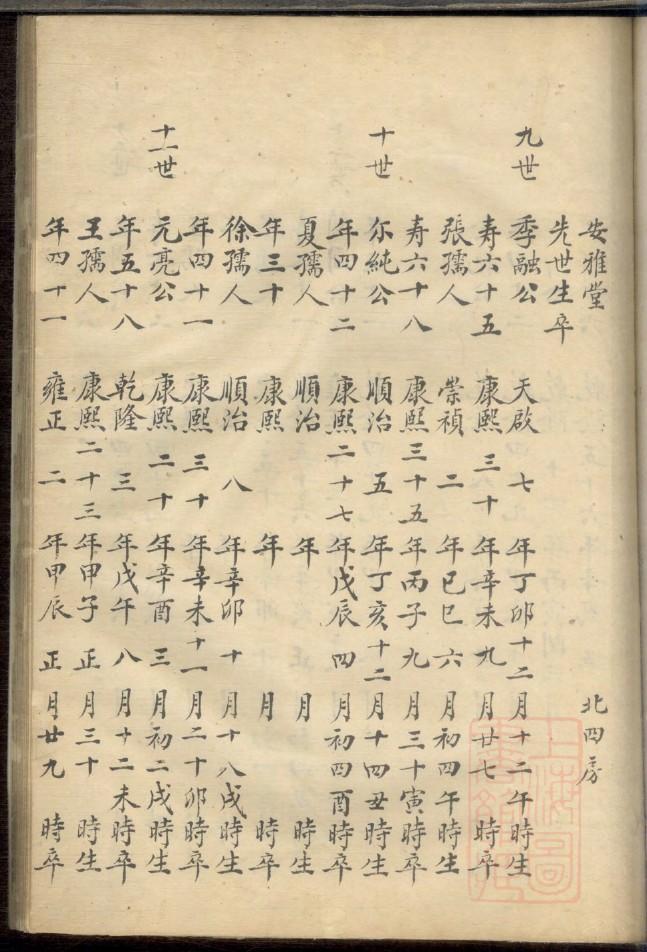 安雅堂 北四房
先世生卒
九世 季融公 天啟七年丁卯十二月十二午時生
寿六十五 康熙三十年辛未九月廿七 時卒
張孺人 崇禎二年己巳六月初四午時生
寿六十八 康熙三十五年丙子九月三十寅時卒
十世 尔純公 順治五年丁亥十二月十四丑時生
年四十二 康熙二十七年戊辰四月初四酉時卒
夏孺人 順治 年 月 時生
年三十 康熙 年 月 時卒
徐孺人 順治八年辛卯十月十八戌時生
年四十一 康熙三十年辛未十一月二十卯時卒
十一世 元亮公 康熙二十年辛酉三月初二戌時生
年五十八 乾隆三年戊午八月十二未時卒
王孺人 康熙二十三年甲子正月三十 時生
年四十一 雍正二年甲辰正月廿九 時卒
上海圖書館藏